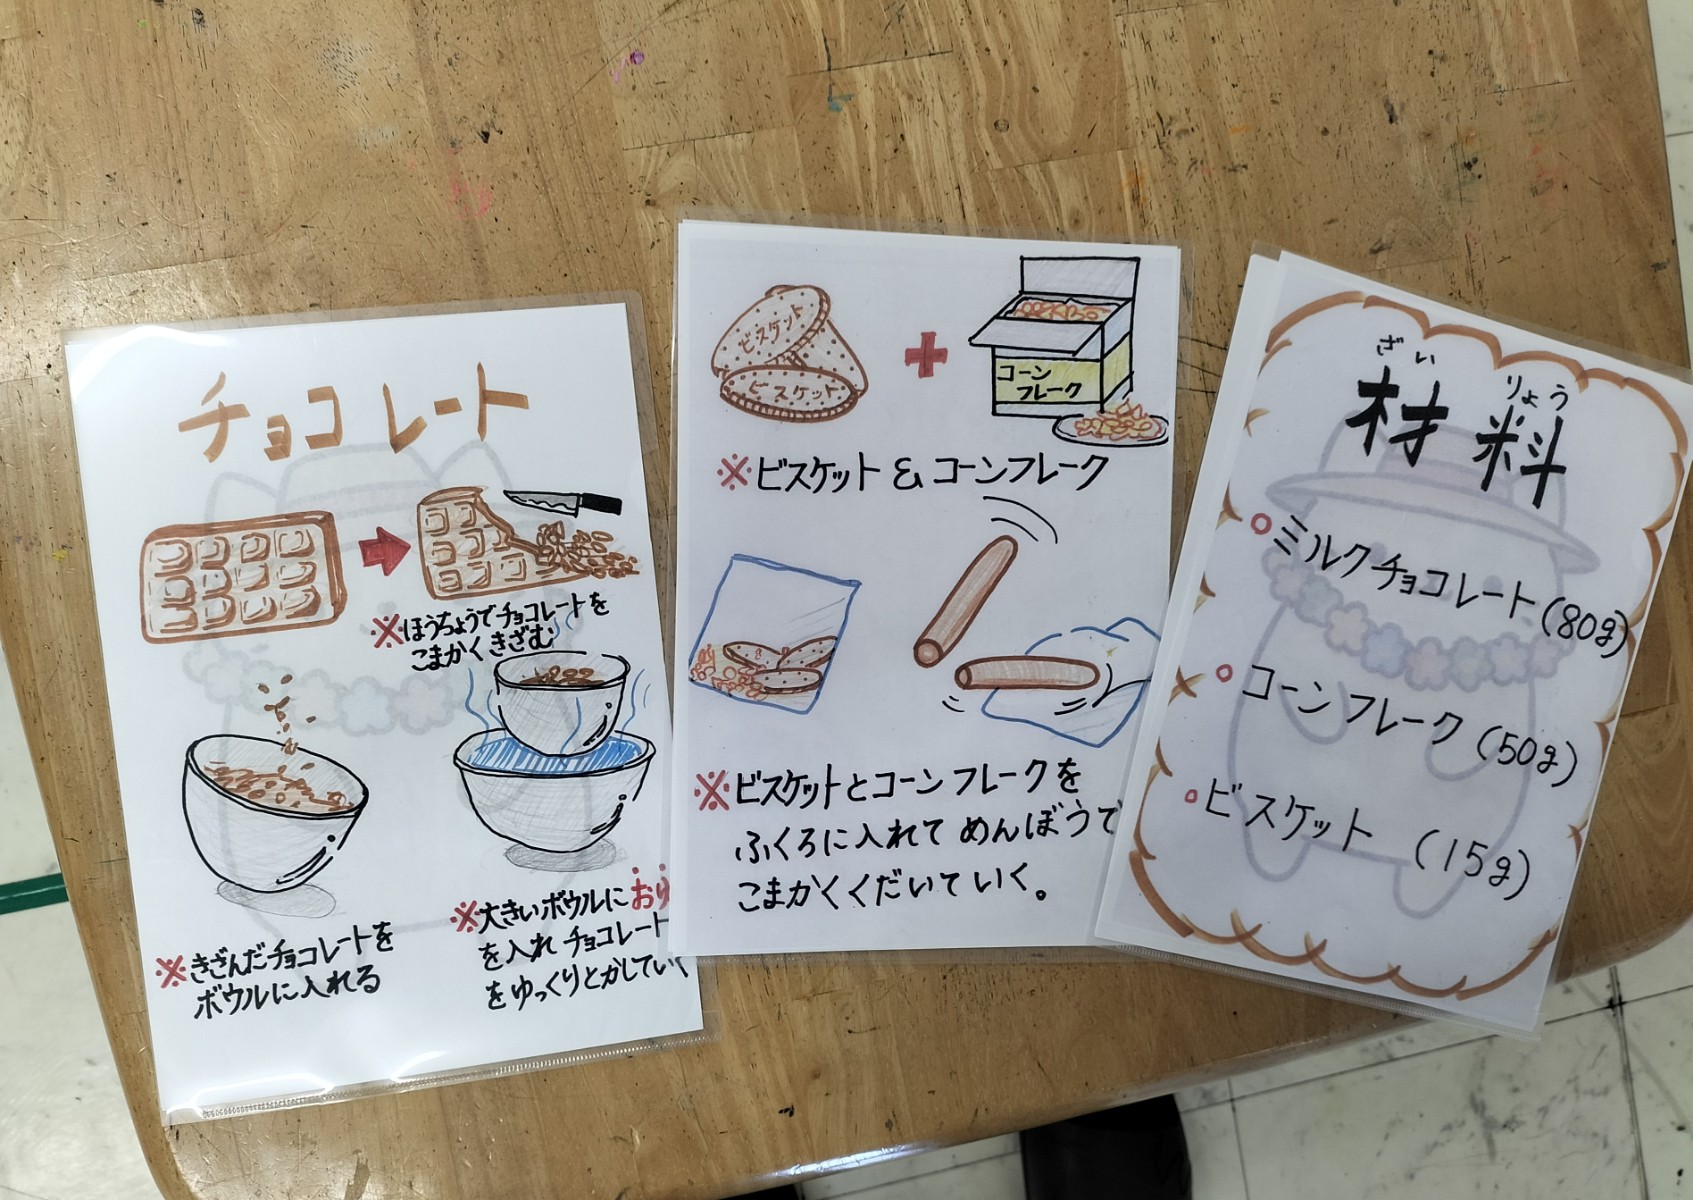 チョコレート
※ほうちょうでチョコレートを
こまかくきざむ
※きざんだチョコレートを
ボウルに入れる
※大きいボウルにお
を入れチョコレート
をゆっくりとかしていく
ビスケット
ビスケット
コーン
フレーク
※ビスケット&コーンフレーク
※ビスケットとコーンフレークを
ふくろに入れてめんぼうで
こまかくくだいていく。
ざいりょう
材料
○ミルクチョコレート(80g)
○コーンフレーク(50g)
○ビスケット(15g)